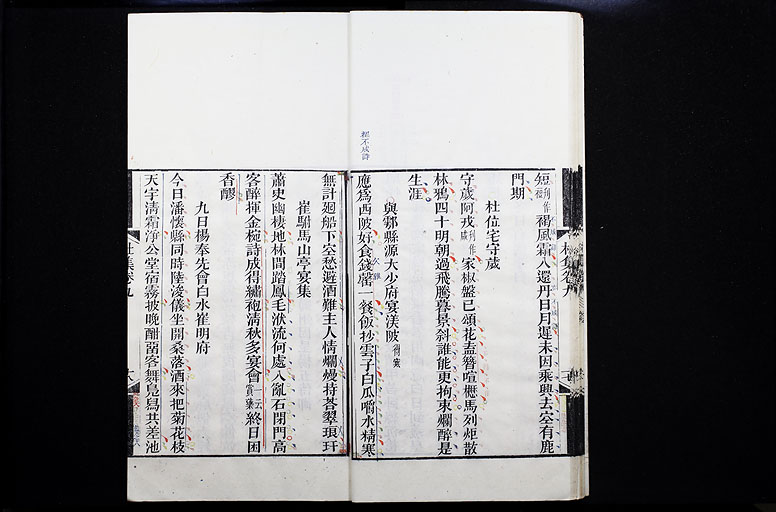 短褐風霜入還丹日月遲未因乘興去空有鹿
門期
杜位宅守歲
守歲阿戎家椒盤已頌花盍簪喧櫪馬列炬散
林鴉四十明朝過飛騰暮景斜誰能更拘束爛醉是
生涯
與鄠縣源大少府宴渼陂
應為西陂好金錢罄一餐飯抄雲子白瓜嚼水精寒
程不成詩
無計迴船下空愁避酒難主人情爛熳持荅翠琅玕
崔駙馬山亭宴集
蕭史幽棲地林間踏鳳毛洑流何處入亂石閉門高
客醉揮金椀詩成得繡袍清秋多宴會終日困
香醪
九日楊奉先會白水崔明府
今日潘懷縣同時陸浚儀坐開桑落酒來把菊花枝
天宇清霜淨公堂宿霧披晚酣留客舞鳧舄共差池
杜集卷九